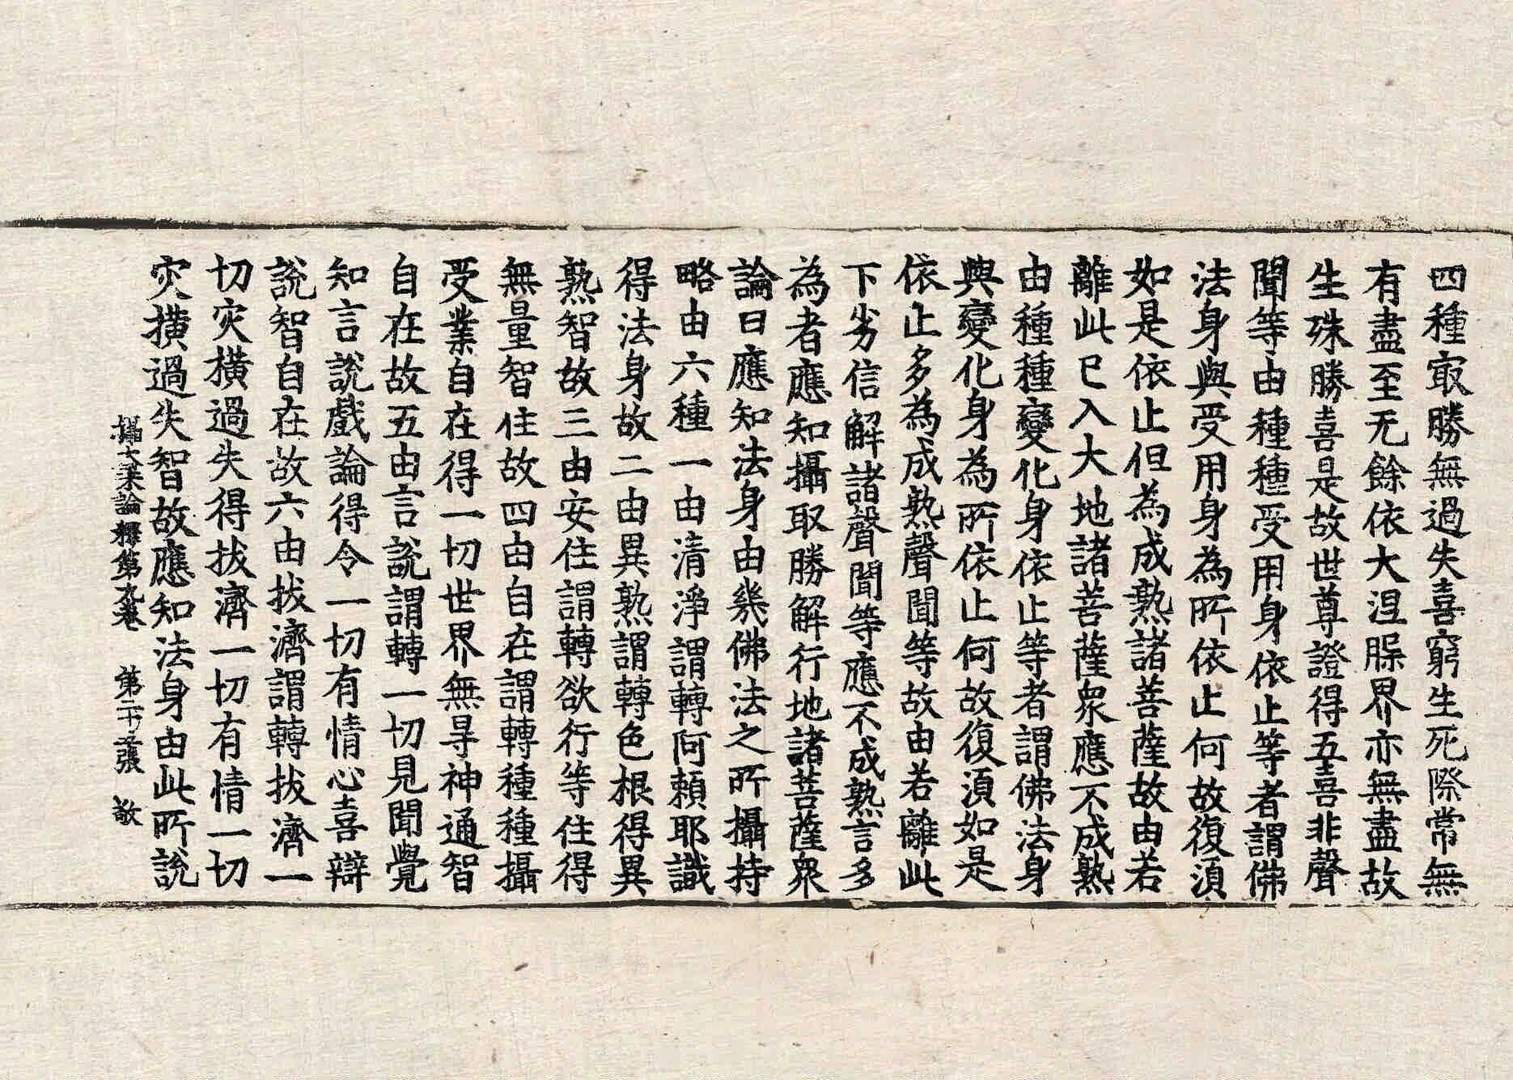 四種㝡勝無過失喜窮生死際常無
有盡至无餘依大涅槃界亦無盡故
生殊勝喜是故世尊證得五喜非聲
聞等由種種受用身依止等者謂佛
法身與受用身為所依止何故復湏
如是依止但為成熟諸菩薩故由若
離此已入大地諸菩薩衆應不成熟
由種種變化身依止等者謂佛法身
與變化身為所依止何故復湏如是
依止多為成熟聲聞等故由若離此
下劣信解諸聲聞等應不成熟言多
為者應知攝取勝解行地諸菩薩衆
論曰應知法身由幾佛法之所攝持
略由六種一由清淨謂轉阿頼耶識
得法身故二由異熟謂轉色根得異
熟智故三由安住謂轉欲行等住得
無量智住故四由自在謂轉種種攝
受業自在得一切世界無㝵神通智
自在故五由言說謂轉一切見聞覺
知言說戲論得令一切有情心喜辯
說智自在故六由拔濟謂轉拔濟一
切灾橫過失得拔濟一切有情一切
灾橫過失智故應知法身由此所說
攝大乘論釋第九卷 第二十五張 敬